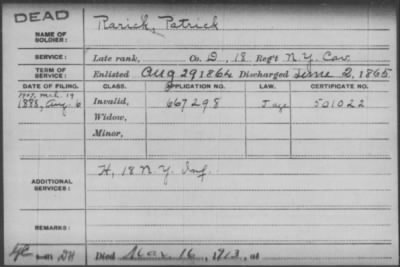 DEAD
NAME OF SOLDIER: Rarick, Patrick
SERVICE: Late rank, Co. D, 18 Reg't N.Y. Cav.
TERM OF SERVICE: Enlisted Aug 29 1864 Discharged June 2, 1865
DATE OF FILING. CLASS. APPLICATION NO. LAW. CERTIFICATE NO.
1907, Mch. 19
1888, Aug. 6 Invalid, 667298 501022
Widow,
Minor,
ADDITIONAL SERVICES: H, 18 N.Y. Inf.
REMARKS:
Died Mar. 16, 1913, at